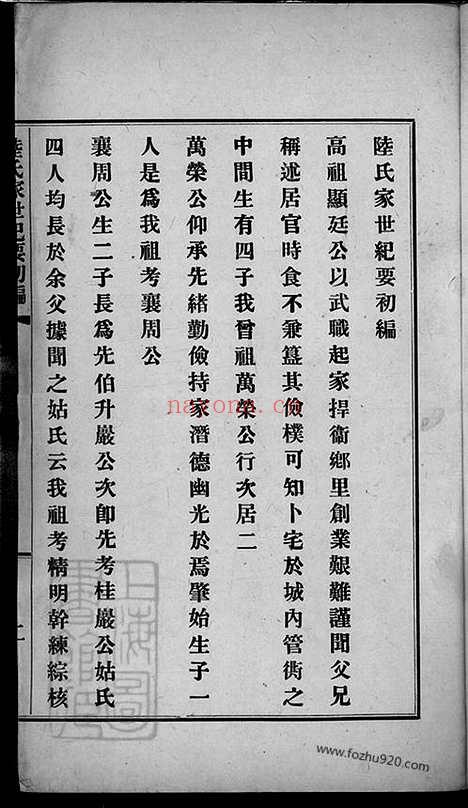 陸氏家世紀要初編
高祖顯廷公以武職起家捍衞鄉里創業艱難謹聞父兄
稱述居官時食不兼簋其儉樸可知卜宅於城內管衖之
中間生有四子我曾祖萬榮公行次居二
萬榮公仰承先緒勤儉持家潛德幽光於焉肇始生子一
人是爲我祖考襄周公
襄周公生二子長爲先伯升嚴公次卽先考桂嚴公姑氏
四人均長於余父據聞之姑氏云我祖考精明幹練綜核
陸氏家世紀要初編
上海圖書館藏
www.fozhu920.com